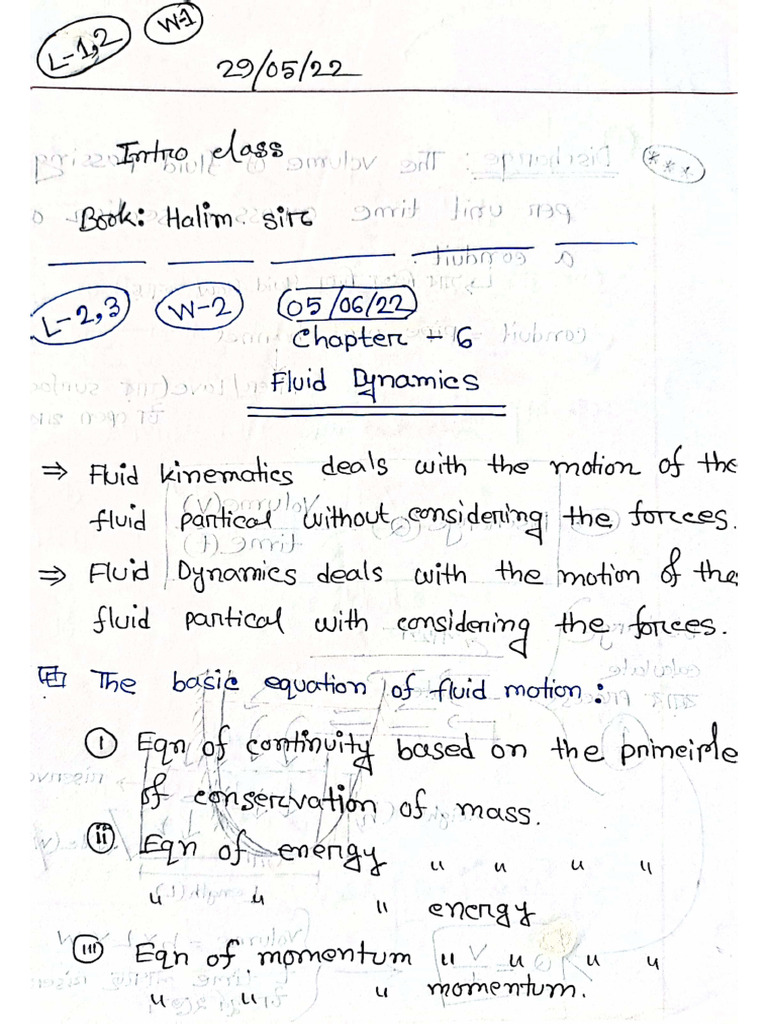 L-1,2 W-1
29/05/22
Intro class
Book: Halim sir
L-2,3 W-2 05/06/22
Chapter - 6
Fluid Dynamics
⇒ Fluid kinematics deals with the motion of the
fluid partical without considering the forces.
⇒ Fluid Dynamics deals with the motion of the
fluid partical with considering the forces.
The basic equation of fluid motion:
(i) Eqn of continuity based on the principle
of conservation of mass.
(ii) Eqn of energy " " " "
" " " energy
(iii) Eqn of momentum " " " "
" " " momentum.